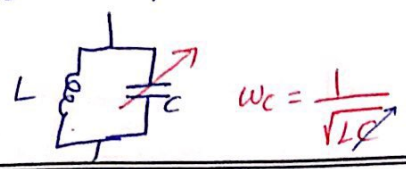 L C ω_c = 1/√LC